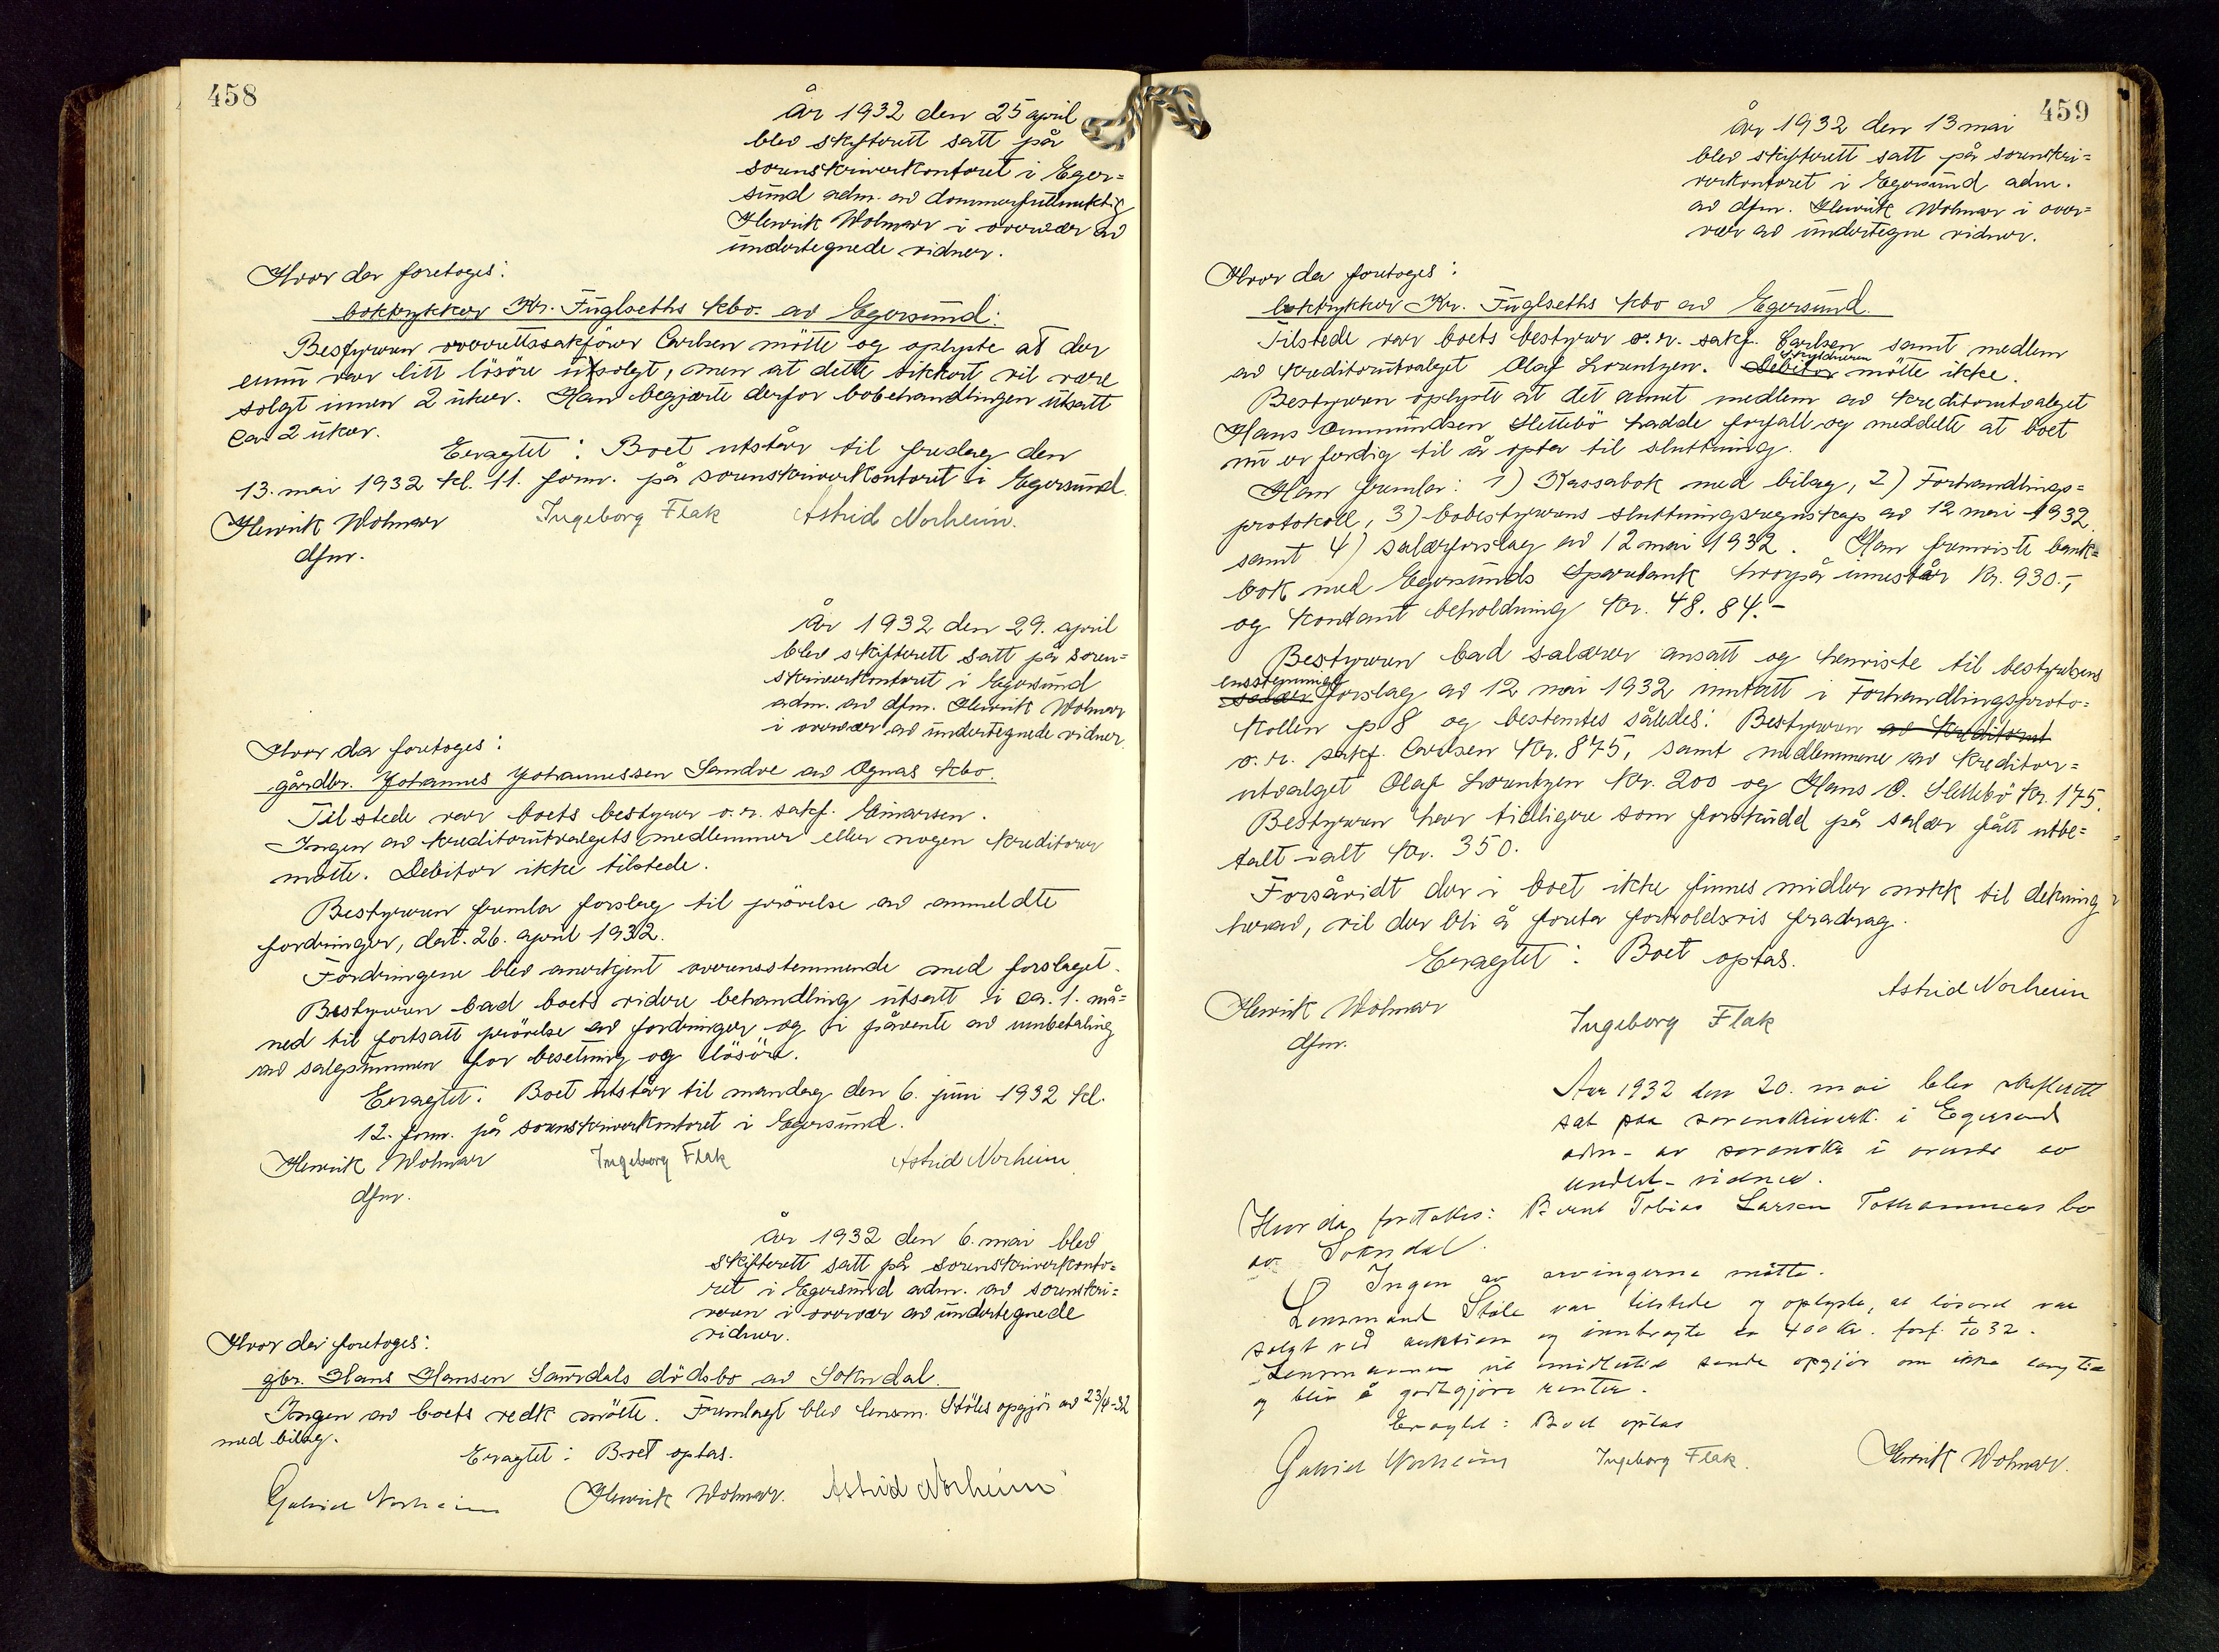 458
År 1932 den 25 april
blev skifterett satt på
sorenskriverkontoret i Eger=
sund adm. av dommerfullmektig
Henrik Wolmar i overvær av
undertegnede vidner.
Hvor da foretoges:
boktrykker Kr. Fuglseths kbo. av Egersund:
Bestyreren overrettssakfører Carlsen møtte og oplyste at der
ennu var litt løsøre usolgt, men at dette sikkert vil være
solgt innen 2 uker. Han begjærte derfor bobehandlingen utsatt
ca. 2 uker.
Eragtet: Boet utstår til fredag den
13. mai 1932 kl. 11. form. på sorenskriverkontoret i Egersund.
Henrik Wolmar Ingeborg Flak Astrid Norheim.
dfm.
År 1932 den 29. april
blev skifterett satt på soren=
skriverkontoret i Egersund
adm. av dfm. Henrik Wolmar
i overvær av undertegnede vidner.
Hvor da foretoges:
gårdbr. Johannes Johannessen Sandve av Ognas kbo.
Tilstede var boets bestyrer o.r. sakf. Einarsen.
Ingen av kreditorutvalgets medlemmer eller nogen kreditorer
møtte. Debitor ikke tilstede.
Bestyreren fremla forslag til prøvelse av anmeldte
fordringer, dat. 26. april 1932.
Fordringene blev anerkjent overensstemmende med forslaget.
Bestyreren bad boets videre behandling utsatt i ca. 1. må=
ned til fortsatt prøvelse av fordringer og i påvente av innbetaling
av salgssummen for besetning og løsøre.
Eragtet: Boet utstår til mandag den 6. juni 1932 kl.
12. form. på sorenskriverkontoret i Egersund.
Henrik Wolmar Ingeborg Flak Astrid Norheim
dfm.
År 1932 den 6. mai blev
skifterett satt på sorenskriverkonto=
ret i Egersund adm. av sorenskri=
veren i overvær av undertegnede
vidner.
Hvor da foretoges:
gbr. Hans Hansen Saurdals dødsbo av Sokndal.
Ingen av boets vedk møtte. Fremlagt blev lensm. Støles opgjør av 23/4-32
med bilag.
Eragtet: Boet optas.
Gabriel Norheim Henrik Wolmar. Astrid Norheim
459
År 1932 den 13 mai
blev skifterett satt på sorenskri=
verkontoret i Egersund adm.
av dfm. Henrik Wolmar i over=
vær av undertegne vidner.
Hvor da foretoges:
boktrykker Kr. Fuglseths kbo av Egersund.
Tilstede var boets bestyrer o.r. sakf. Carlsen samt medlem
av kreditorutvalget Olaf Lorentzen. Debitor møtte ikke.
Bestyreren oplyste at det annet medlem av kreditorutvalget
Hans Ommundsen Slettebø hadde forfall og meddelte at boet
nu er ferdig til å opta til sluttning.
Han fremla: 1) Kassabok med bilag, 2) Forhandlings=
protokoll, 3) bobestyrerens sluttningsregnskap av 12 mai 1932
samt 4) salærforslag av 12 mai 1932. Han fremviste bank=
bok med Egersunds Sparebank hvorpå innestår kr. 930.-,
og kontant beholdning kr. 48.84.-
Bestyreren bad salærer ansatt og henviste til bestyrelsens
enstemmige
salær forslag av 12 mai 1932 inntatt i Forhandlingsproto=
kollen p. 8 og bestemtes således: Bestyreren av kreditorut
o.r. sakf. Carlsen kr. 875, samt medlemmene av kreditor=
utvalget Olaf Lorentzen kr. 200 og Hans O. Slettebø kr. 175.
Bestyreren har tidligere som forskudd på salær fått utbe=
talt ialt kr. 350.
Forsåvidt der i boet ikke finnes midler nokk til dekning
herav, vil der bli å foreta forholdsvis fradrag.
Eragtet: Boet optas.
Astrid Norheim
Henrik Wolmar Ingeborg Flak
dfm.
Aar 1932 den 20. mai blev skifterett
sat paa sorenskriverk. i Egersund
adm. av sorenskr i overvær av
undert. vidner.
Hvor da foretokes: Bernt Tobias Larsen Tothammers bo
av Sokndal.
Ingen av arvingerne møtte.
Lensmand Støle var tilstede og oplyste, at løsøret var
solgt ved auktion og innbragte ca 400 kr. forf. 1/10 32.
Lensmannen vil imidlertid sende opgjør om ikke lang tid
og blir å godtgjøre renter.
Eragtet: Boet optas
Gabriel Norheim Ingeborg Flak. Henrik Wolmar.